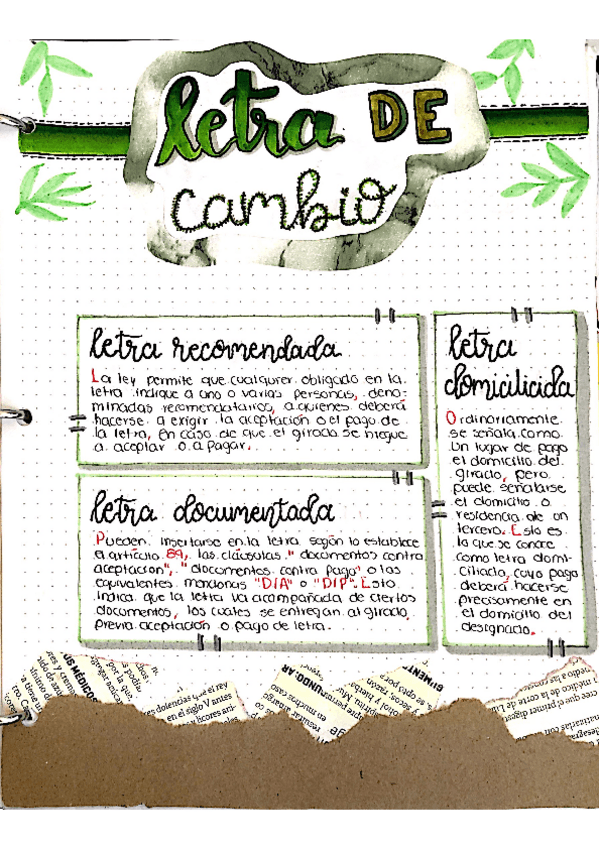 letra DE
cambio
letra recomendada
La ley permite que cualquier obligado en la
letra indique a uno o varias personas, deno-
minadas recomendatarios, a quienes deberá
hacerse a exigir la aceptación o el pago de
la letra, en caso de que el girado se niegue
a aceptar o a pagar.
letra documentada
Pueden insertarse en la letra según lo establece
el artículo 89, las cláusulas "documentos contra
aceptación", "documentos contra pago" o los
equivalentes menciones "D/A" o "D/P". Esto
indica que la letra va acompañada de ciertos
documentos, los cuales se entregan al girado,
previa aceptación o pago de letra.
letra
domiciliada
Ordinariamente
se señala como
un lugar de pago
el domicilio del
girado, pero
puede señalarse
el domicilio o
residencia de un
tercero. Esto es
lo que se conoce
como letra domi-
ciliada, cuyo pago
deberá hacerse
precisamente en
el domicilio del
designado.
US MÉDICOS
por la que
dolencias que el rey
en el siglo V antes
licores ari-
PERFUNDO: AR
en muchos casos